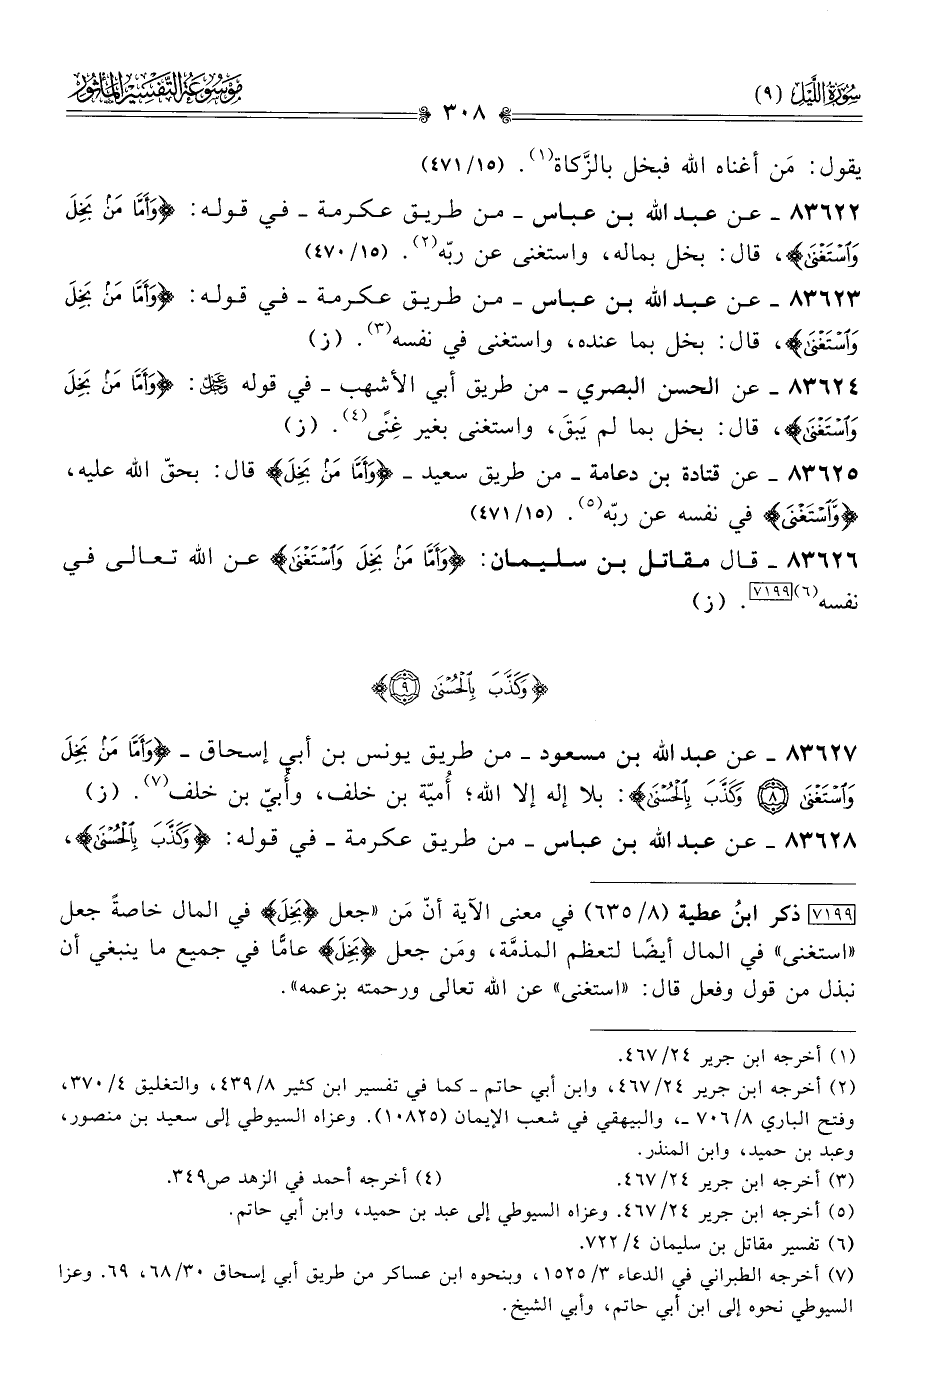 سُورَةُ اللَّيْلِ (٩)
٣٠٨
مَوْسُوعَةُ التَّفْسِيرِ المَأْثُورِ
يقول: مَن أغناه الله فبخل بالزَّكاة(١). (٤٧١/١٥)
٨٣٦٢٢ ـ عن عبد الله بن عباس ـ من طريق عكرمة ـ في قوله: ﴿وَأَمَّا مَنۢ بَخِلَ
وَٱسْتَغْنَىٰ﴾، قال: بخل بماله، واستغنى عن ربّه(٢). (٤٧٠/١٥)
٨٣٦٢٣ ـ عن عبد الله بن عباس ـ من طريق عكرمة ـ في قوله: ﴿وَأَمَّا مَنۢ بَخِلَ
وَٱسْتَغْنَىٰ﴾، قال: بخل بما عنده، واستغنى في نفسه(٣). (ز)
٨٣٦٢٤ ـ عن الحسن البصري ـ من طريق أبي الأشهب ـ في قوله عز وجل: ﴿وَأَمَّا مَنۢ بَخِلَ
وَٱسْتَغْنَىٰ﴾، قال: بخل بما لم يَبقَ، واستغنى بغير غِنًى(٤). (ز)
٨٣٦٢٥ ـ عن قتادة بن دعامة ـ من طريق سعيد ـ ﴿وَأَمَّا مَنۢ بَخِلَ﴾ قال: بحقّ الله عليه،
﴿وَٱسْتَغْنَىٰ﴾ في نفسه عن ربّه(٥). (٤٧١/١٥)
٨٣٦٢٦ ـ قال مقاتل بن سليمان: ﴿وَأَمَّا مَنۢ بَخِلَ وَٱسْتَغْنَىٰ﴾ عن الله تعالى في
نفسه(٦)[٧١٩٩]. (ز)
﴿وَكَذَّبَ بِٱلْحُسْنَىٰ ٩﴾
٨٣٦٢٧ ـ عن عبد الله بن مسعود ـ من طريق يونس بن أبي إسحاق ـ ﴿وَأَمَّا مَنۢ بَخِلَ
وَٱسْتَغْنَىٰ ٨ وَكَذَّبَ بِٱلْحُسْنَىٰ﴾: بلا إله إلا الله؛ أُميّة بن خلف، وأُبيّ بن خلف(٧). (ز)
٨٣٦٢٨ ـ عن عبد الله بن عباس ـ من طريق عكرمة ـ في قوله: ﴿وَكَذَّبَ بِٱلْحُسْنَىٰ﴾،
[٧١٩٩] ذكر ابنُ عطية (٦٣٥/٨) في معنى الآية أنّ مَن «جعل ﴿بَخِلَ﴾ في المال خاصةً جعل
«استغنى» في المال أيضًا لتعظم المذمَّة، ومَن جعل ﴿بَخِلَ﴾ عامًّا في جميع ما ينبغي أن
نبذل من قول وفعل قال: «استغنى» عن الله تعالى ورحمته بزعمه».
(١) أخرجه ابن جرير ٤٦٧/٢٤.
(٢) أخرجه ابن جرير ٤٦٧/٢٤، وابن أبي حاتم ـ كما في تفسير ابن كثير ٤٣٩/٨، والتغليق ٣٧٠/٤،
وفتح الباري ٧٠٦/٨ ـ، والبيهقي في شعب الإيمان (١٠٨٢٥). وعزاه السيوطي إلى سعيد بن منصور،
وعبد بن حميد، وابن المنذر.
(٣) أخرجه ابن جرير ٤٦٧/٢٤. (٤) أخرجه أحمد في الزهد ص٣٤٩.
(٥) أخرجه ابن جرير ٤٦٧/٢٤. وعزاه السيوطي إلى عبد بن حميد، وابن أبي حاتم.
(٦) تفسير مقاتل بن سليمان ٧٢٢/٤.
(٧) أخرجه الطبراني في الدعاء ١٥٢٥/٣، وبنحوه ابن عساكر من طريق أبي إسحاق ٦٨/٣٠، ٦٩. وعزا
السيوطي نحوه إلى ابن أبي حاتم، وأبي الشيخ.